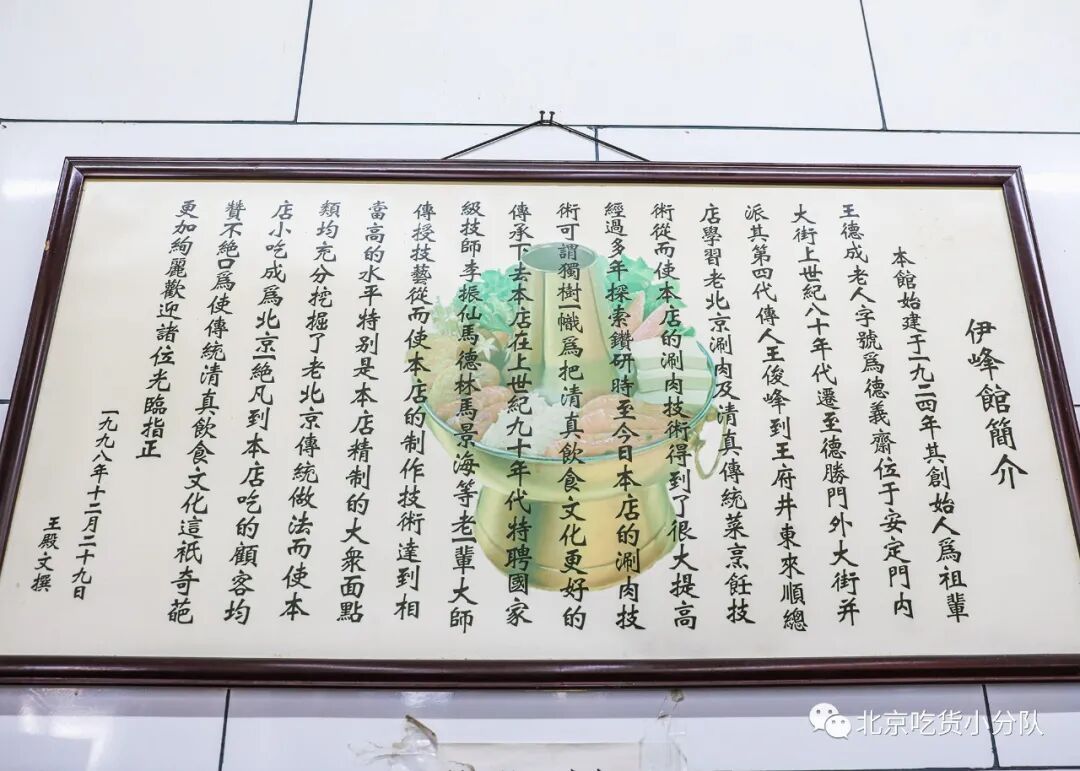 伊峰館簡介
本館始建于一九二四年其創始人爲祖輩
王德成老人字號爲德義齋位于安定門内
大街上世紀八十年代遷至德勝門外大街并
派其第四代傳人王俊峰到王府井東來順總
店學習老北京涮肉及清真傳統菜烹飪技
術從而使本店的涮肉技術得到了很大提高
經過多年探索鑽研時至今日本店的涮肉技
術可謂獨樹一幟爲把清真飲食文化更好的
傳承下去本店在上世紀九十年代特聘國家
級技師李振仙馬德林馬景海等老一輩大師
傳授技藝從而使本店的制作技術達到相
當高的水平特别是本店精制的大衆面點
類均充分挖掘了老北京傳統做法而使本
店小吃成爲北京一絶凡到本店吃的顧客均
贊不絶口爲使傳統清真飲食文化這衹奇葩
更加絢麗歡迎諸位光臨指正
一九九八年十二月二十九日
王殿文撰
北京吃货小分队